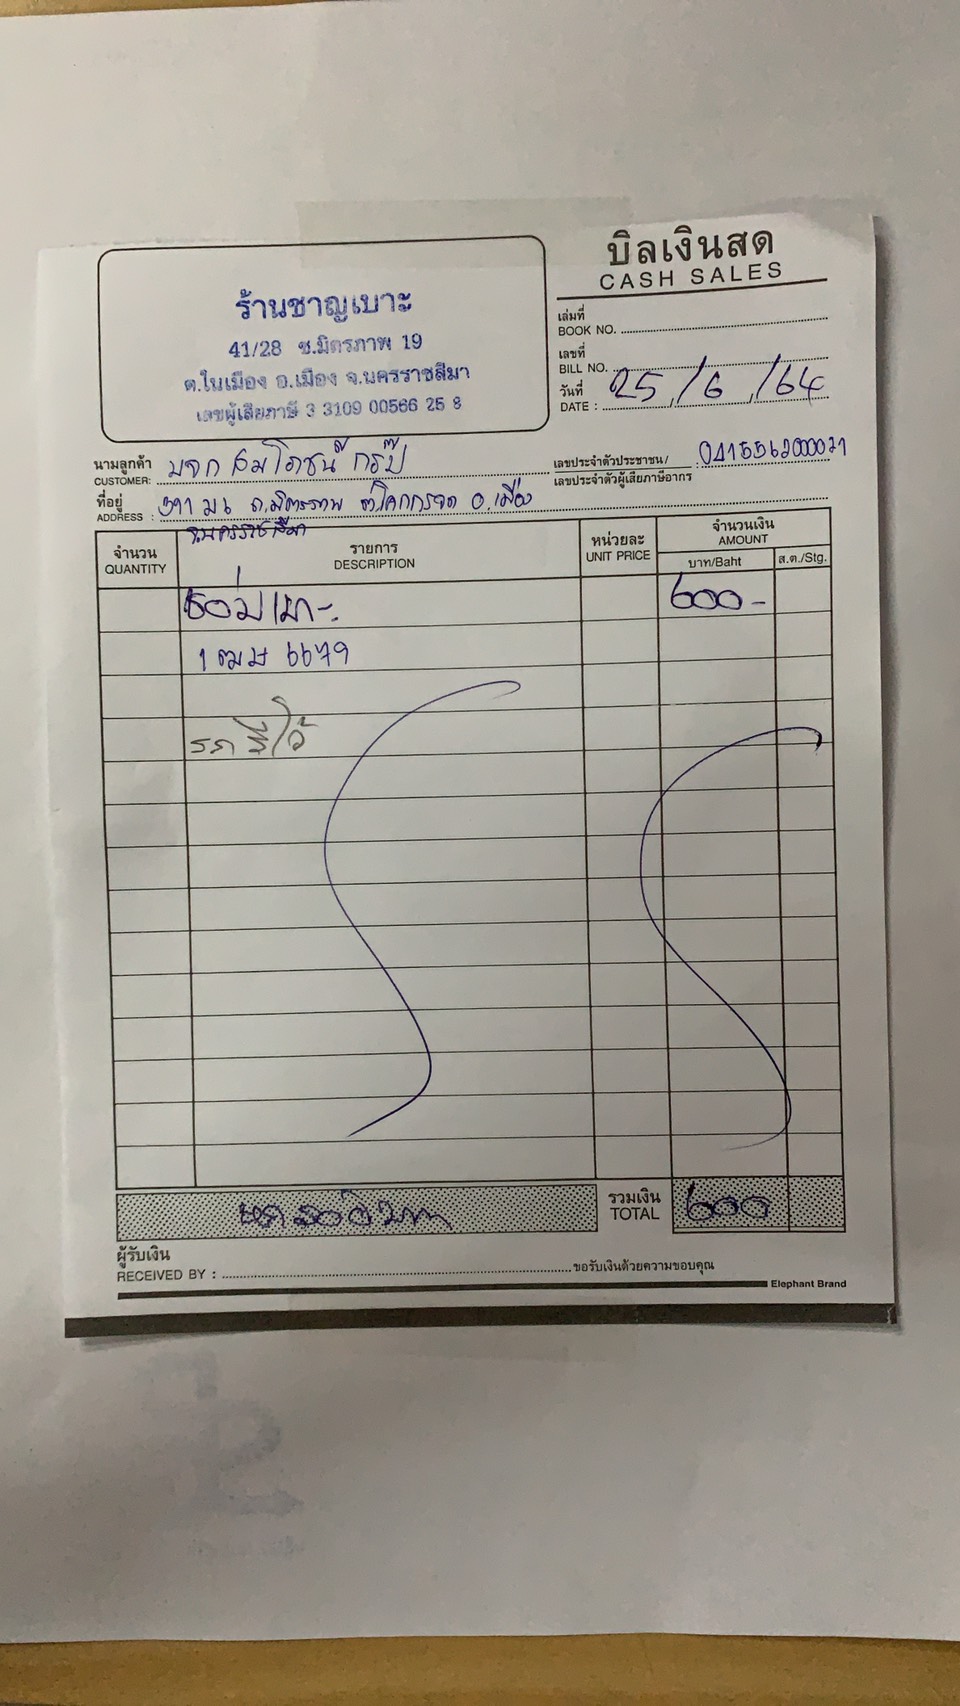 บิลเงินสด
CASH SALES
ร้านชาญเบาะ
41/28 ซ.มิตรภาพ 19
ต.ในเมือง อ.เมือง จ.นครราชสีมา
เลขผู้เสียภาษี 3 3109 00566 25 8
เล่มที่
BOOK NO.
เลขที่
BILL NO.
วันที่
DATE : 25/6/64
นามลูกค้า
CUSTOMER: บจก สมโภชน์ กรุ๊ป
เลขประจำตัวประชาชน/
เลขประจำตัวผู้เสียภาษีอากร
ที่อยู่
ADDRESS : ถ.มิตรภาพ ต.โคกกรวด อ.เมือง
จ.นครราชสีมา
จำนวน
QUANTITY
รายการ
DESCRIPTION
หน่วยละ
UNIT PRICE
จำนวนเงิน
AMOUNT
บาท/Baht
ส.ต./Stg.
ซ่อมเบาะ 600-
6679
หกร้อยบาท
รวมเงิน
TOTAL 600
ผู้รับเงิน
RECEIVED BY :
ขอรับเงินด้วยความขอบคุณ
Elephant Brand